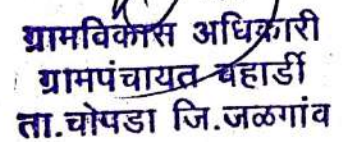 ग्रामविकास अधिकारी
ग्रामपंचायत वहार्डी
ता.चोपडा जि.जळगांव